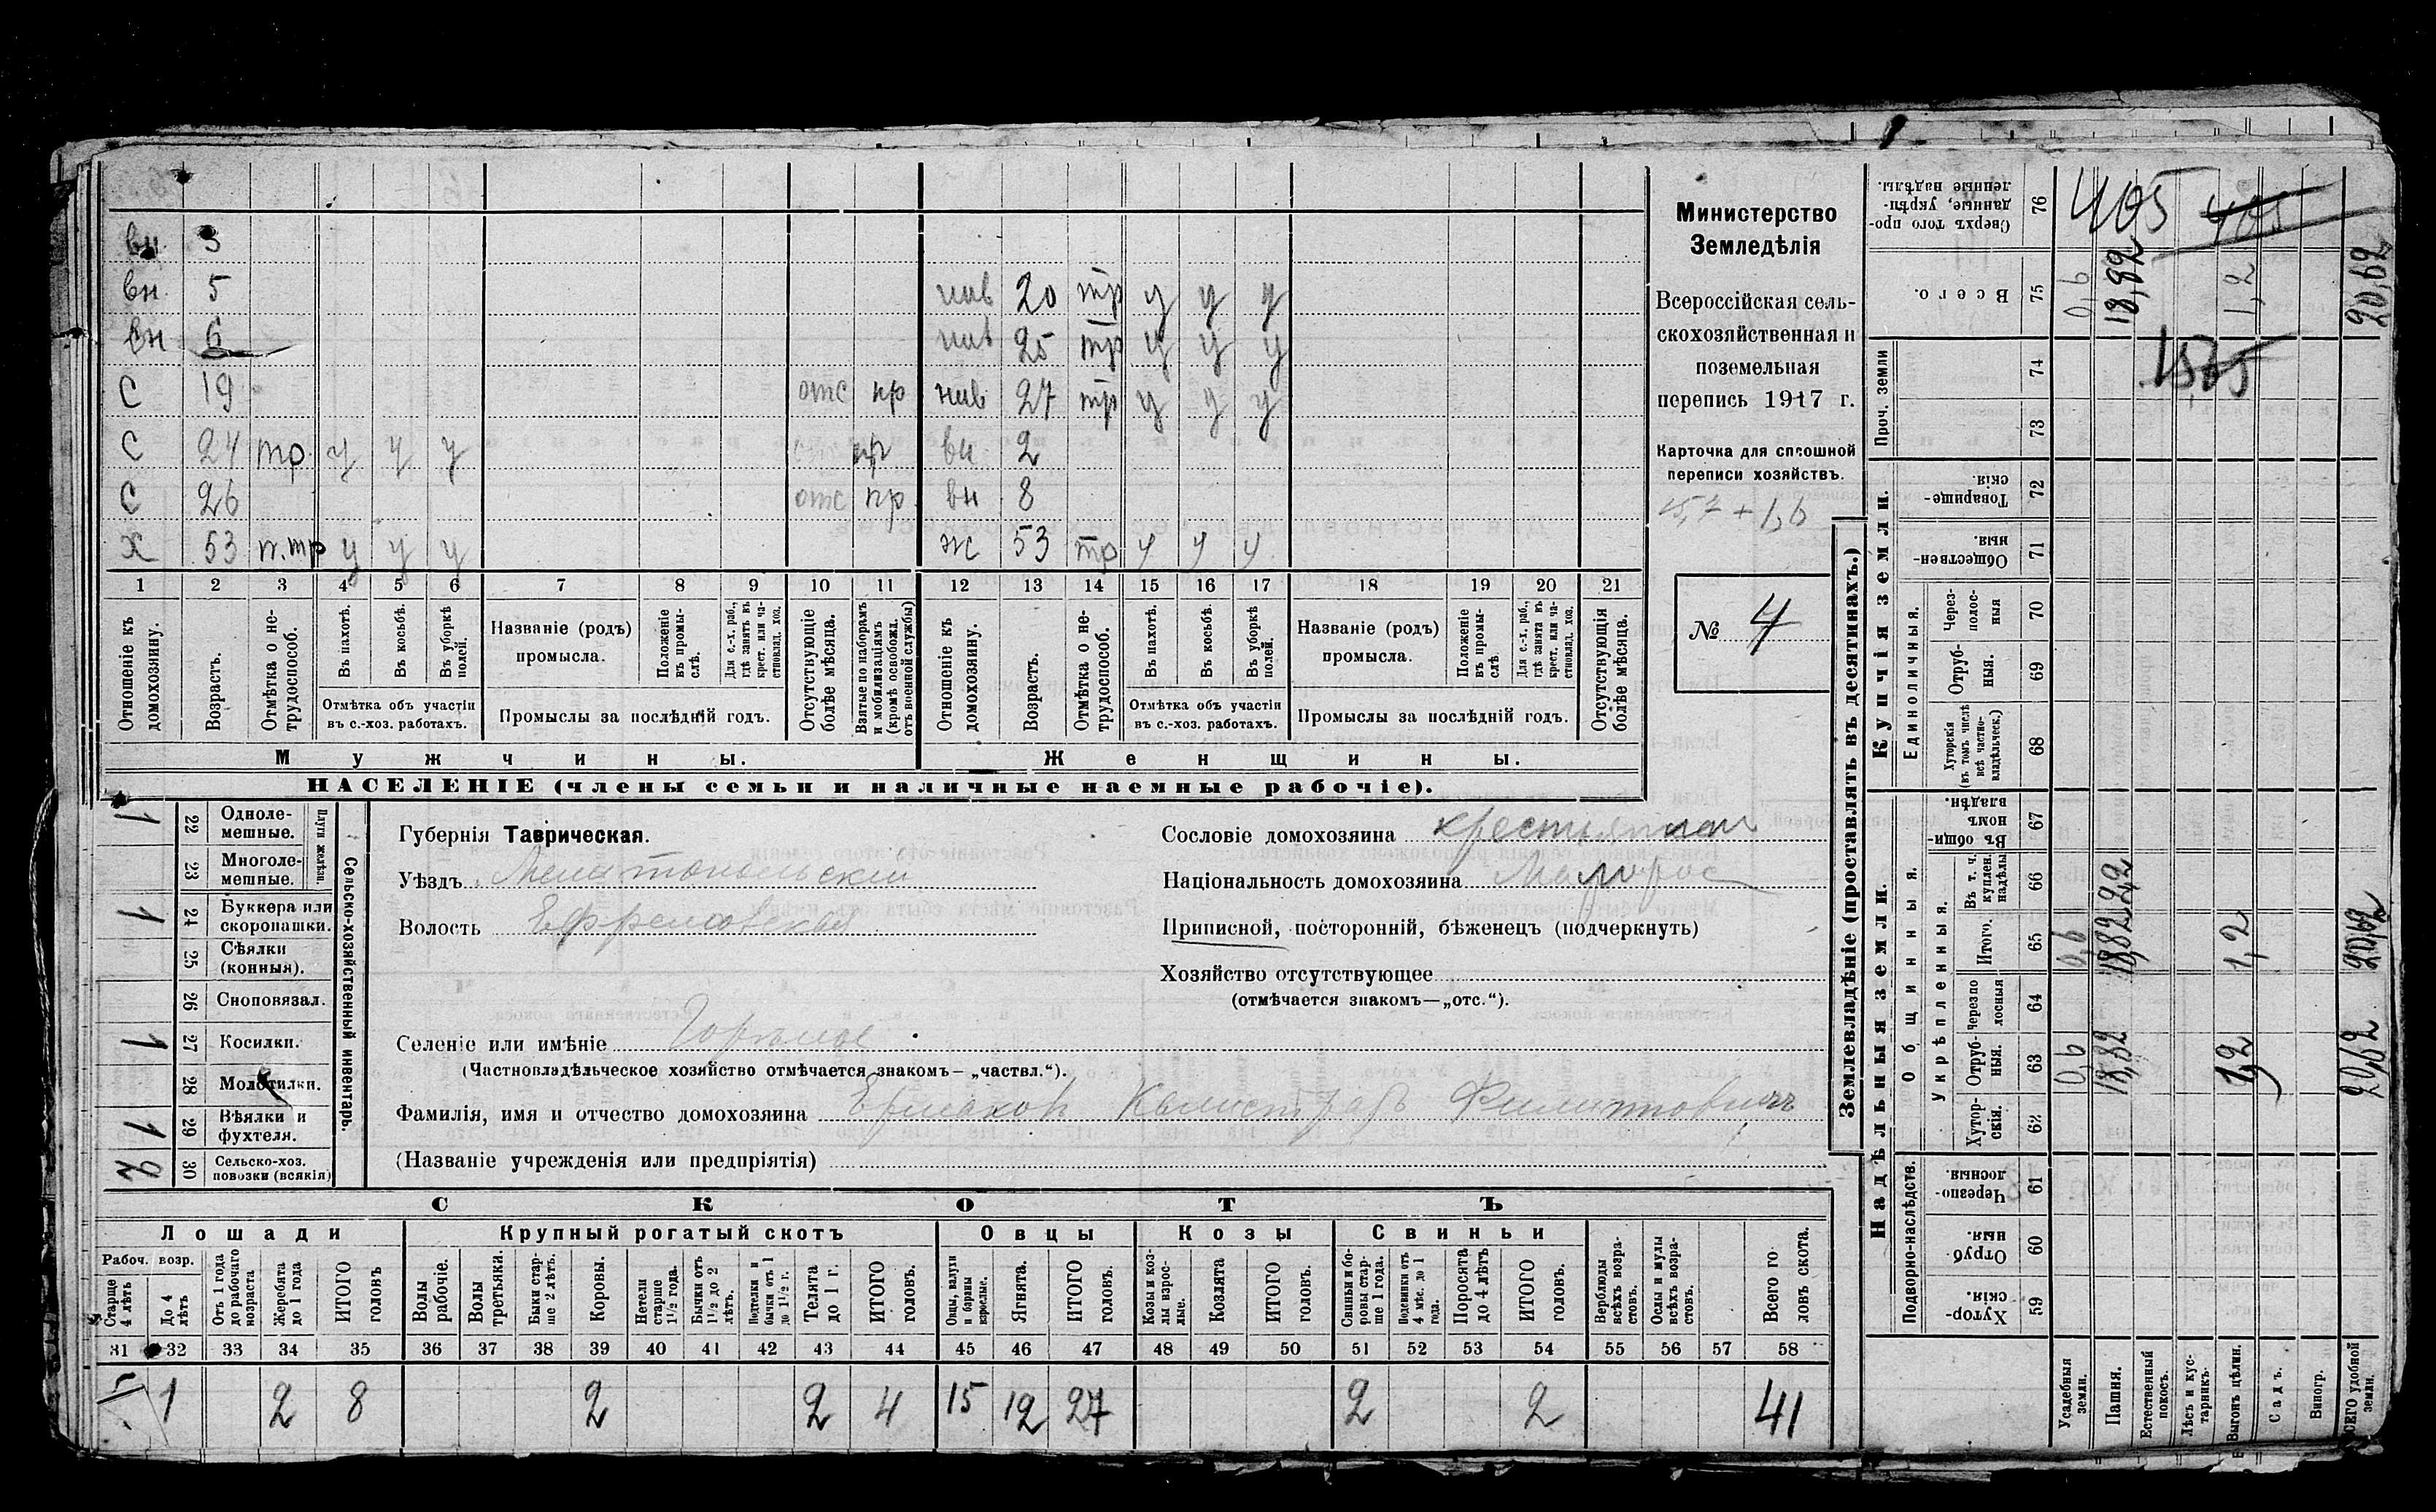 вн 3
вн 5 нев 20 тр у у у
вн 6 нев 25 тр у у у
С 19 отс пр нев 27 тр у у у
С 24 тр у у у пр вн 2
С 26 отс пр вн 8
Х 53 п.тр у у у ж 53 тр у у у
1 2 3 4 5 6 7 8 9 10 11 12 13 14 15 16 17 18 19 20 21
Отношеніе къ домохозяину.
Возрастъ.
Отмѣтка о нетрудоспособ.
Въ пахотѣ.
Въ косьбѣ.
Въ уборкѣ полей.
Отмѣтка объ участіи
въ с.-хоз. работахъ.
Названіе (родъ)
промысла.
Положеніе въ промыслѣ.
Для с.-х. раб., гдѣ занятъ въ крест. или частновлад. хоз.
Промыслы за послѣдній годъ.
Отсутствующіе болѣе мѣсяца.
Взятые по наборамъ и мобилизаціямъ (кромѣ освобожд. отъ военной службы)
Отношеніе къ домохозяину.
Возрастъ.
Отмѣтка о нетрудоспособ.
Въ пахотѣ.
Въ косьбѣ.
Въ уборкѣ полей.
Отмѣтка объ участіи
въ с.-хоз. работахъ.
Названіе (родъ)
промысла.
Положеніе въ промыслѣ
Для с.-х. раб., гдѣ занята въ крест. или частновлад. хоз.
Промыслы за послѣдній годъ.
Отсутствующія болѣе мѣсяца.
Мужчины. Женщины.
НАСЕЛЕНІЕ (члены семьи и наличные наемные рабочіе).
Министерство
Земледѣлія
Всероссійская сель-
скохозяйственная и
поземельная
перепись 1917 г.
Карточка для сплошной
переписи хозяйствъ.
№ 4
1 22 Однолемешные.
23 Многолемешные.
Плуги желѣзн.
1 24 Буккера или скоропашки.
25 Сѣялки (конныя).
26 Сноповязал.
1 27 Косилки.
28 Молотилки.
1 29 Вѣялки и фухтеля.
2 30 Сельско-хоз. повозки (всякія)
Сельско-хозяйственный инвентарь.
Губернія Таврическая.
Уѣздъ Мелитопольскій
Волость Ефремовская
Селеніе или имѣніе Горѣлое
(Частновладѣльческое хозяйство отмѣчается знакомъ— „частвл.“).
Фамилія, имя и отчество домохозяина Ермаков Калистрат Филиппович
(Названіе учрежденія или предпріятія)
Сословіе домохозяина крестьянин
Національность домохозяина Малорос
Приписной, посторонній, бѣженецъ (подчеркнуть)
Хозяйство отсутствующее
(отмѣчается знакомъ—„отс.“).
СКОТЪ
Лошади Крупный рогатый скотъ Овцы Козы Свиньи
Рабоч. возр.
Старше 4 лѣтъ
До 4 лѣтъ
Отъ 1 года до рабочаго возраста
Жеребята до 1 года
ИТОГО головъ
Волы рабочіе.
Волы третьяки.
Быки старше 2 лѣтъ.
Коровы.
Нетели старше 1½ года.
Бычки отъ 1½ до 2 лѣтъ.
Подтелки и бычки отъ 1 до 1½ г.
Телята до 1 г.
ИТОГО головъ.
Овцы, валухи и бараны взрослые.
Ягнята.
ИТОГО головъ.
Козы и козлы взрослые.
Козлята
ИТОГО головъ.
Свиньи и боровы старше 1 года.
Подсвинки отъ 4 мѣс. до 1 года.
Поросята до 4 лѣтъ
ИТОГО головъ.
Верблюды всѣхъ возрастовъ.
Ослы и мулы всѣхъ возрастовъ.
Всего головъ скота.
31 32 33 34 35 36 37 38 39 40 41 42 43 44 45 46 47 48 49 50 51 52 53 54 55 56 57 58
5 1 2 8 2 2 4 15 12 27 2 2 41
Землевладѣніе (проставлять въ десятинахъ.)
Купчія земли.
Надѣльныя земли.
Сверхъ того проданные, укрѣпленные надѣлы. 76 405 405
Всего. 75 0,6 18,82 1,2 20,62
Проч. земли 74
73
Товарищескія. 72
Общественныя. 71
Единоличныя.
Черезполосныя 70
Отрубныя. 69
Хуторскія (въ томъ числѣ всѣ частновладѣльческ.) 68
Общинныя.
Въ общинномъ владѣн. 67
Укрѣпленныя.
Въ т. ч. куплен. надѣлы 66 2,2
Итого. 65 0,6 18,82 1,2 20,62
Черезполосныя 64
Отрубныя. 63 0,6 18,82 1,2 20,62
Хуторскія. 62
Подворно-наслѣдств.
Черезполосныя 61
Отрубныя. 60
Хуторскія. 59
Усадебныя земли.
Пашня.
Естественный покосъ.
Лѣсъ и кустарникъ.
Выгонъ цѣлин.
Садъ.
Виногр.
ВСЕГО удобной земли.